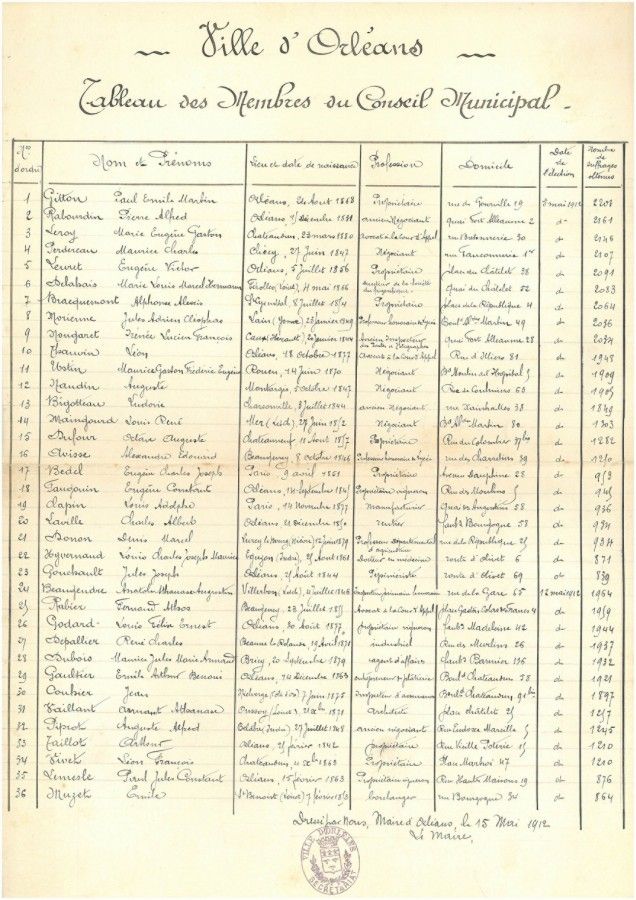 Ville d'Orléans
Tableau des Membres du Conseil Municipal
Nos d'ordre Nom et Prénoms Lieu et date de naissance Profession Domicile Date de l'élection Nombre de suffrages obtenus
1 Gitton Paul Emile Martin Orléans, 24 Août 1868 Propriétaire rue de Gourville 19 5 mai 1912 2208
2 Rabourdin Pierre Alfred Orléans décembre ancien Négociant Quai Fort Alleaume 2 do 2161
3 Leroy Marie Eugène Gaston Chateaudun, 23 mars 1880 Avocat à la Cour d'Appel rue Bretonnerie 30 do 2146
4 Perdereau Maurice Charles Chécy, 27 Juin 1847 Négociant rue do 2107
5 Levret Eugène Victor Orléans, 5 Juillet 1866 Propriétaire place du Châtelet 38 do 2091
6 Delahais Marie Louis Marcel 11 mai 1866 Quai du Châtelet 52 do 2083
7 Bracquemont Alphonse Alexis Propriétaire place de la République 4 do 2064
8 Jules Adrien Cléophas Lain (Yonne) 23 janvier Professeur honoraire Boul. St Martin 49 do 2036
9 Irénée Lucien François janvier Ancien Inspecteur des Postes et Télégraphes Quai Fort Alleaume 28 do
10 Léon Orléans, 18 octobre 1877 Avocat à la Cour d'Appel Rue d'Illiers 81 do 1948
11 Maurice Gaston Frédéric Eugène Rouen, 14 Juin 1870 Négociant do 1909
12 Auguste Montargis, 5 octobre 1847 Négociant Rue de 63 do 1905
13 Bigotteau Ludovic Charsonville, 8 Juillet 1844 ancien Négociant rue Vauxhalles 38 do 1849
14 Maingourd Louis René Mer Négociant Bd St Martin 80 do 1303
15 Dufour Octave Auguste Chateauneuf 11 Août Propriétaire Rue du Colombier do 1282
16 Avisse Alexandre Edouard Beaugency, 8 octobre 1846 Professeur honoraire rue des Charretiers 39 do 1210
17 Bedel Eugène Charles Joseph Paris, 9 avril 1861 Propriétaire Avenue Dauphine 28 do 953
18 Eugène Constant Orléans, Septembre Propriétaire vigneron Rue des Moulins do
19 Lapin Louis Adolphe Paris, 14 Novembre 1877 manufacturier Quai St Augustin 58 do 936
20 Laville Charles Albert Orléans décembre rentier Faubg Bourgogne 58 do 934
21 Bonon Denis Marcel Livry le Bourg (Nièvre) 12 juin 1879 Professeur départemental d'agriculture rue de la République do 934
22 Hyvernaud Louis Charles Joseph Maurice (Indre), Août 1861 Docteur en médecine route d'olivet 6 do 871
23 Gouchault Jules Joseph Orléans, Août 1844 Pépiniériste route d'olivet 69 do 839
24 Beaujendre Anatole Athanase Augustin Villerbon, (L&C), Juillet 1846 rue de la Gare 65 12 mai 1912 1964
25 Rabier Fernand Athos Beaugency, 23 Juillet Avocat à la Cour d'Appel do 1959
26 Godard Louis Félix Ernest Orléans, 30 Août 1877 propriétaire vigneron Faubg Madeleine 42 do 1944
27 Depallier René Charles Beaune la Rolande, 19 Avril 1871 industriel Rue des Murlins 26 do 1937
28 Dubois Maurice Jules Marie Armand Bricy, 20 septembre 1879 agent d'affaires Faubg Bannier 136 do 1932
29 Gaultier Emile Arthur Benoit Orléans, 14 décembre 1863 entrepreneur de plâtrerie Boul. d Chateaudun 38 do 1921
30 Coubier Jean 7 Juin 1875 Inspecteur d'assurances Boul. d Chateaudun do 1897
31 Vaillant Armant Athanase 1871 architecte place du châtelet do
32 Auguste Alfred (Indre) 27 Juillet 1848 ancien négociant Rue Ludovic do 1245
33 Taillot Arthur Orléans, février 1842 propriétaire Rue Vieille Poterie do 1210
34 Vivet Léon François Chateaudun, 4 Xbre 1863 Propriétaire Marhoi 47 do 1210
35 Lemesle Paul Jules Constant Orléans, 15 février 1863 Propriétaire vigneron Rue Haute Maisons 19 do 876
36 Muzet Emile St Benoit (Loiret) 7 février boulanger rue Bourgogne 34 do 864
Dressé par Nous, Maire d'Orléans, le 15 Mai 1912
Le Maire,
VILLE D'ORLEANS
SECRETARIAT